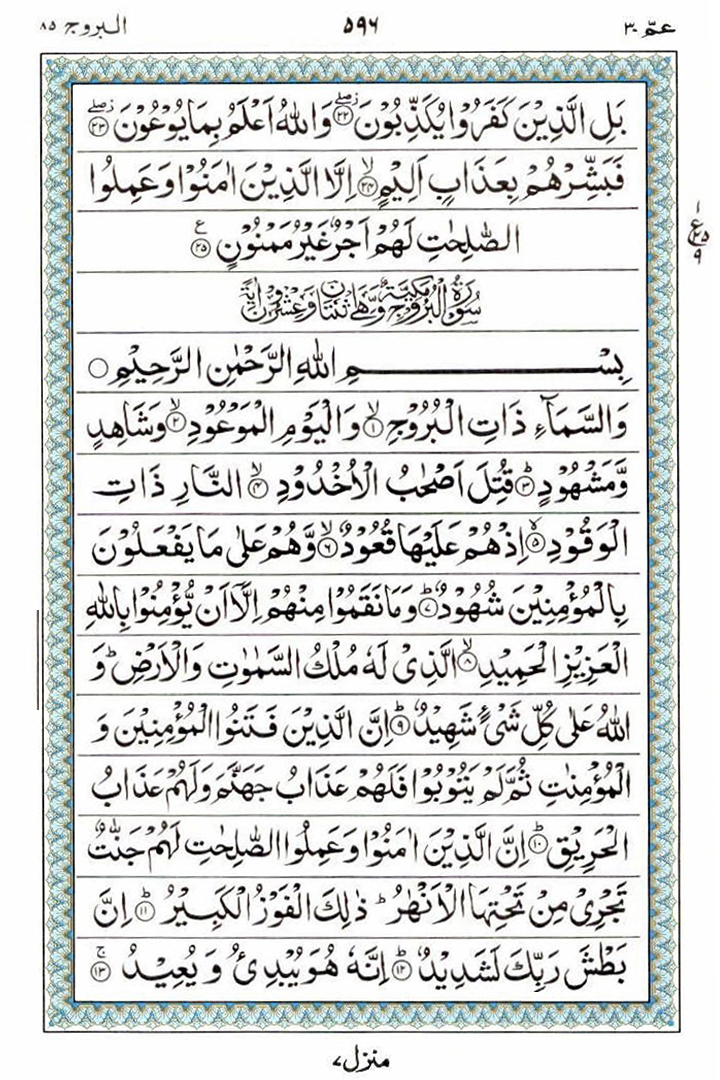 عمّ ۳۰ ۵۹۶ البروج ۸۵
بَلِ الَّذِیْنَ كَفَرُوْا یُكَذِّبُوْنَ ﴿۲۲﴾ۖز وَاللّٰهُ اَعْلَمُ بِمَا یُوْعُوْنَ ﴿۲۳﴾ۖز
فَبَشِّرْهُمْ بِعَذَابٍ اَلِیْمٍ ﴿۲۴﴾ۙ اِلَّا الَّذِیْنَ اٰمَنُوْا وَعَمِلُوا
الصّٰلِحٰتِ لَهُمْ اَجْرٌ غَیْرُ مَمْنُوْنٍ ﴿۲۵﴾ع
۱
ع ۲۵
۹
سُوْرَةُ الْبُرُوْجِ مَكِّیَّةٌ وَّهِیَ اثْنَتَانِ وَعِشْرُوْنَ اٰیَةً
بِسْمِ اللّٰهِ الرَّحْمٰنِ الرَّحِیْمِ
وَالسَّمَآءِ ذَاتِ الْبُرُوْجِ ﴿۱﴾ۙ وَالْیَوْمِ الْمَوْعُوْدِ ﴿۲﴾ۙ وَشَاهِدٍ
وَّمَشْهُوْدٍ ﴿۳﴾ؕ قُتِلَ اَصْحٰبُ الْاُخْدُوْدِ ﴿۴﴾ۙ النَّارِ ذَاتِ
الْوَقُوْدِ ﴿۵﴾ۙ اِذْ هُمْ عَلَیْهَا قُعُوْدٌ ﴿۶﴾ۙ وَّهُمْ عَلٰی مَا یَفْعَلُوْنَ
بِالْمُؤْمِنِیْنَ شُهُوْدٌ ﴿۷﴾ؕ وَمَا نَقَمُوْا مِنْهُمْ اِلَّاۤ اَنْ یُّؤْمِنُوْا بِاللّٰهِ
الْعَزِیْزِ الْحَمِیْدِ ﴿۸﴾ۙ الَّذِیْ لَهٗ مُلْكُ السَّمٰوٰتِ وَالْاَرْضِؕ وَ
اللّٰهُ عَلٰی كُلِّ شَیْءٍ شَهِیْدٌ ﴿۹﴾ؕ اِنَّ الَّذِیْنَ فَتَنُوا الْمُؤْمِنِیْنَ وَ
الْمُؤْمِنٰتِ ثُمَّ لَمْ یَتُوْبُوْا فَلَهُمْ عَذَابُ جَهَنَّمَ وَلَهُمْ عَذَابُ
الْحَرِیْقِ ﴿۱۰﴾ؕ اِنَّ الَّذِیْنَ اٰمَنُوْا وَعَمِلُوا الصّٰلِحٰتِ لَهُمْ جَنّٰتٌ
تَجْرِیْ مِنْ تَحْتِهَا الْاَنْهٰرُؕ ذٰلِكَ الْفَوْزُ الْكَبِیْرُ ﴿۱۱﴾ؕ اِنَّ
بَطْشَ رَبِّكَ لَشَدِیْدٌ ﴿۱۲﴾ؕ اِنَّهٗ هُوَ یُبْدِئُ وَیُعِیْدُ ﴿۱۳﴾ۚ
منزل ۷